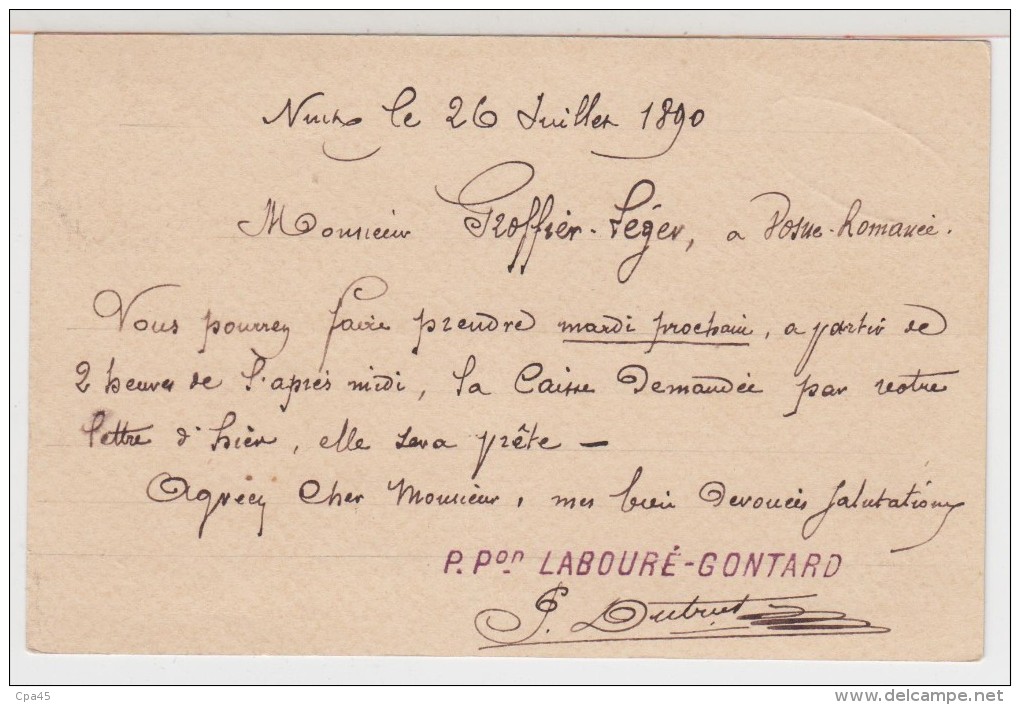 Nuits le 26 Juillet 1890
Monsieur Groffier-Léger, a Vosne-Romanée.
Vous pourrez faire prendre mardi prochain, a partir de
2 heures de l'après midi, la Caisse Demandée par votre
lettre d'hier, elle sera prête —
Agréez Cher Monsieur, mes bien Devouées Salutations
P. Pon LABOURÉ-GONTARD
Cpa45
www.delcampe.net